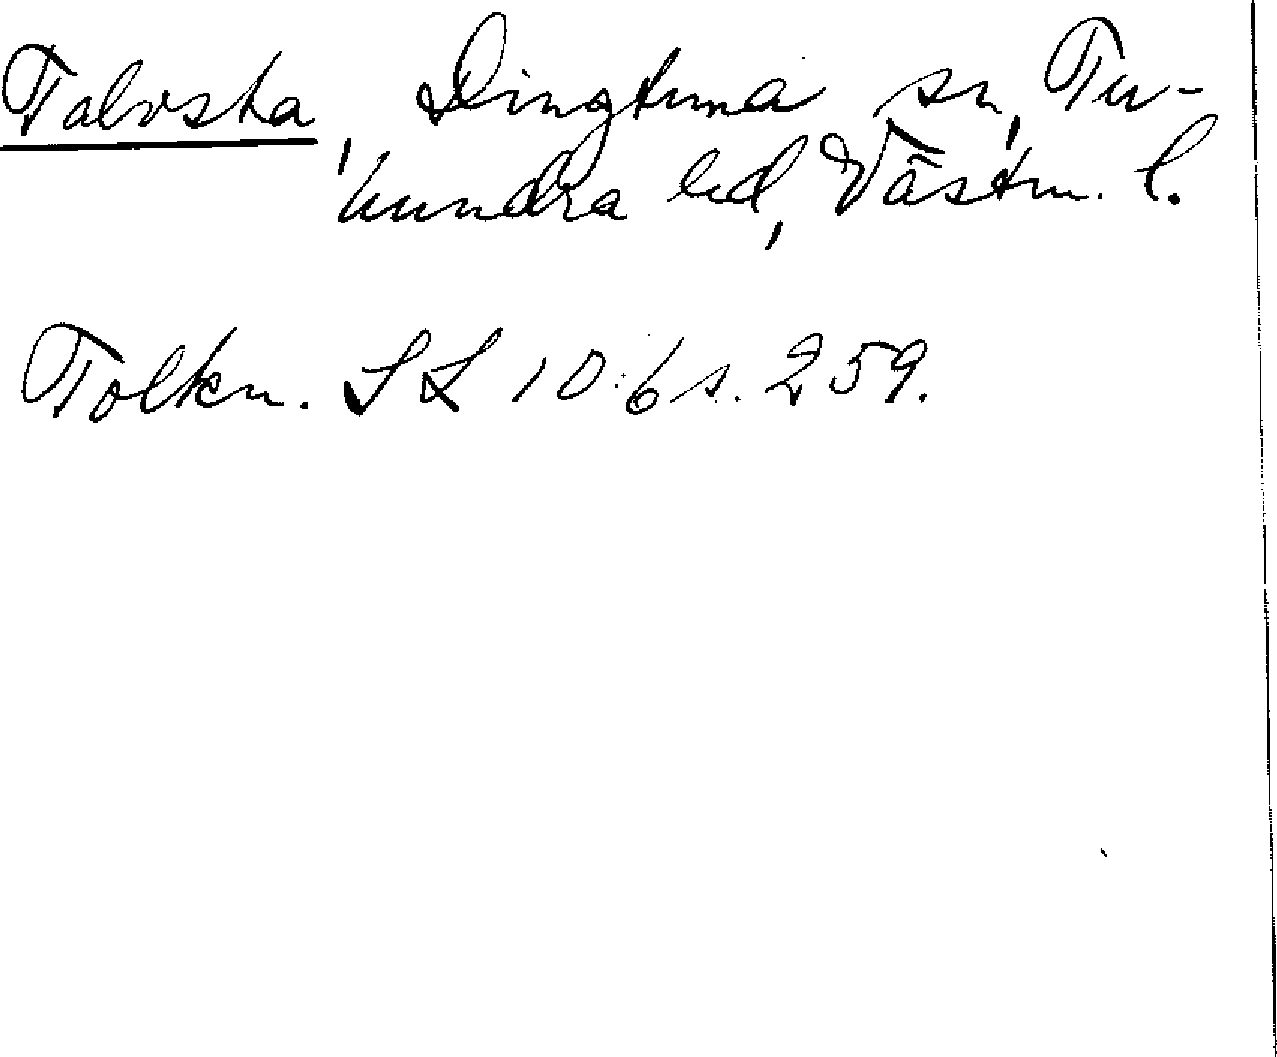 Talvsta, Dingtuna sn, Tu-
hundra hd, Västm. l.
Tolkn. SL 10:6 s. 259.